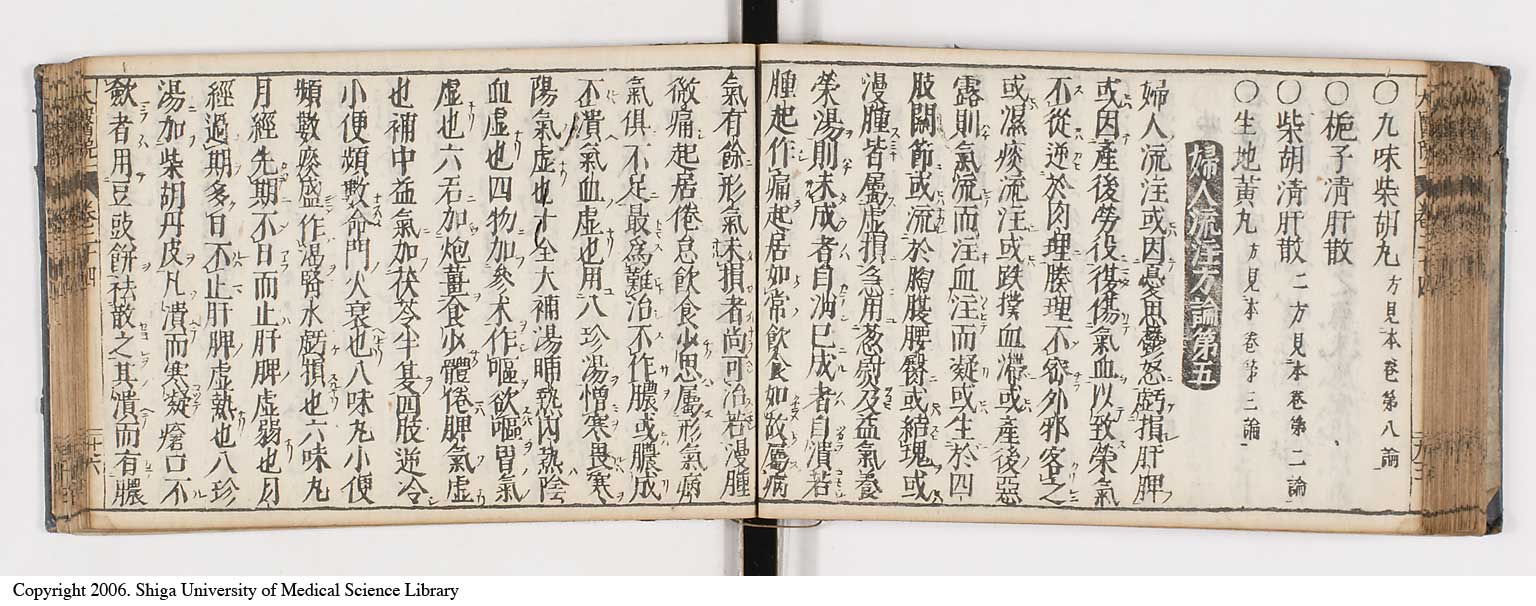 〇九味柴胡丸 方見本卷第八論
〇梔子清肝散
〇柴胡清肝散 二方見本卷第二論
〇生地黄丸 方見本卷第三論
婦人流注方論第五
婦人流注或因憂思鬱怒虧損肝脾
或因產後勞役復傷氣血以致榮氣
不從逆於肉理腠理不密外邪客之
或濕痰流注或跌撲血滯或產後惡
露則氣流而注血注而凝或生於四
肢關節或流於胸腹腰臀或結塊或
漫腫皆屬虛損急用葱熨及益氣養
榮湯則未成者自消已成者自潰若
腫起作痛起居如常飲食如故屬病
氣有餘形氣未損者尚可治若漫腫
微痛起居倦怠飲食少思屬形氣病
氣俱不足最為難治不作膿或膿成
不潰氣血虛也用八珍湯憎寒畏寒
陽氣虛也十全大補湯晡熱內熱陰
血虛也四物加參朮作嘔欲嘔胃氣
虛也六君加炮薑食少體倦脾氣虛
也補中益氣加茯苓半夏四肢逆冷
小便頻數命門火衰也八味丸小便
頻數痰盛作渴腎水虧損也六味丸
月經先期不日而止肝脾虛弱也月
經過期多日不止肝脾虛熱也八珍
湯加柴胡丹皮凡潰而寒凝瘡口不
斂者用豆豉餅祛散之其潰而有膿
二十六
Copyright 2006. Shiga University of Medical Science Library